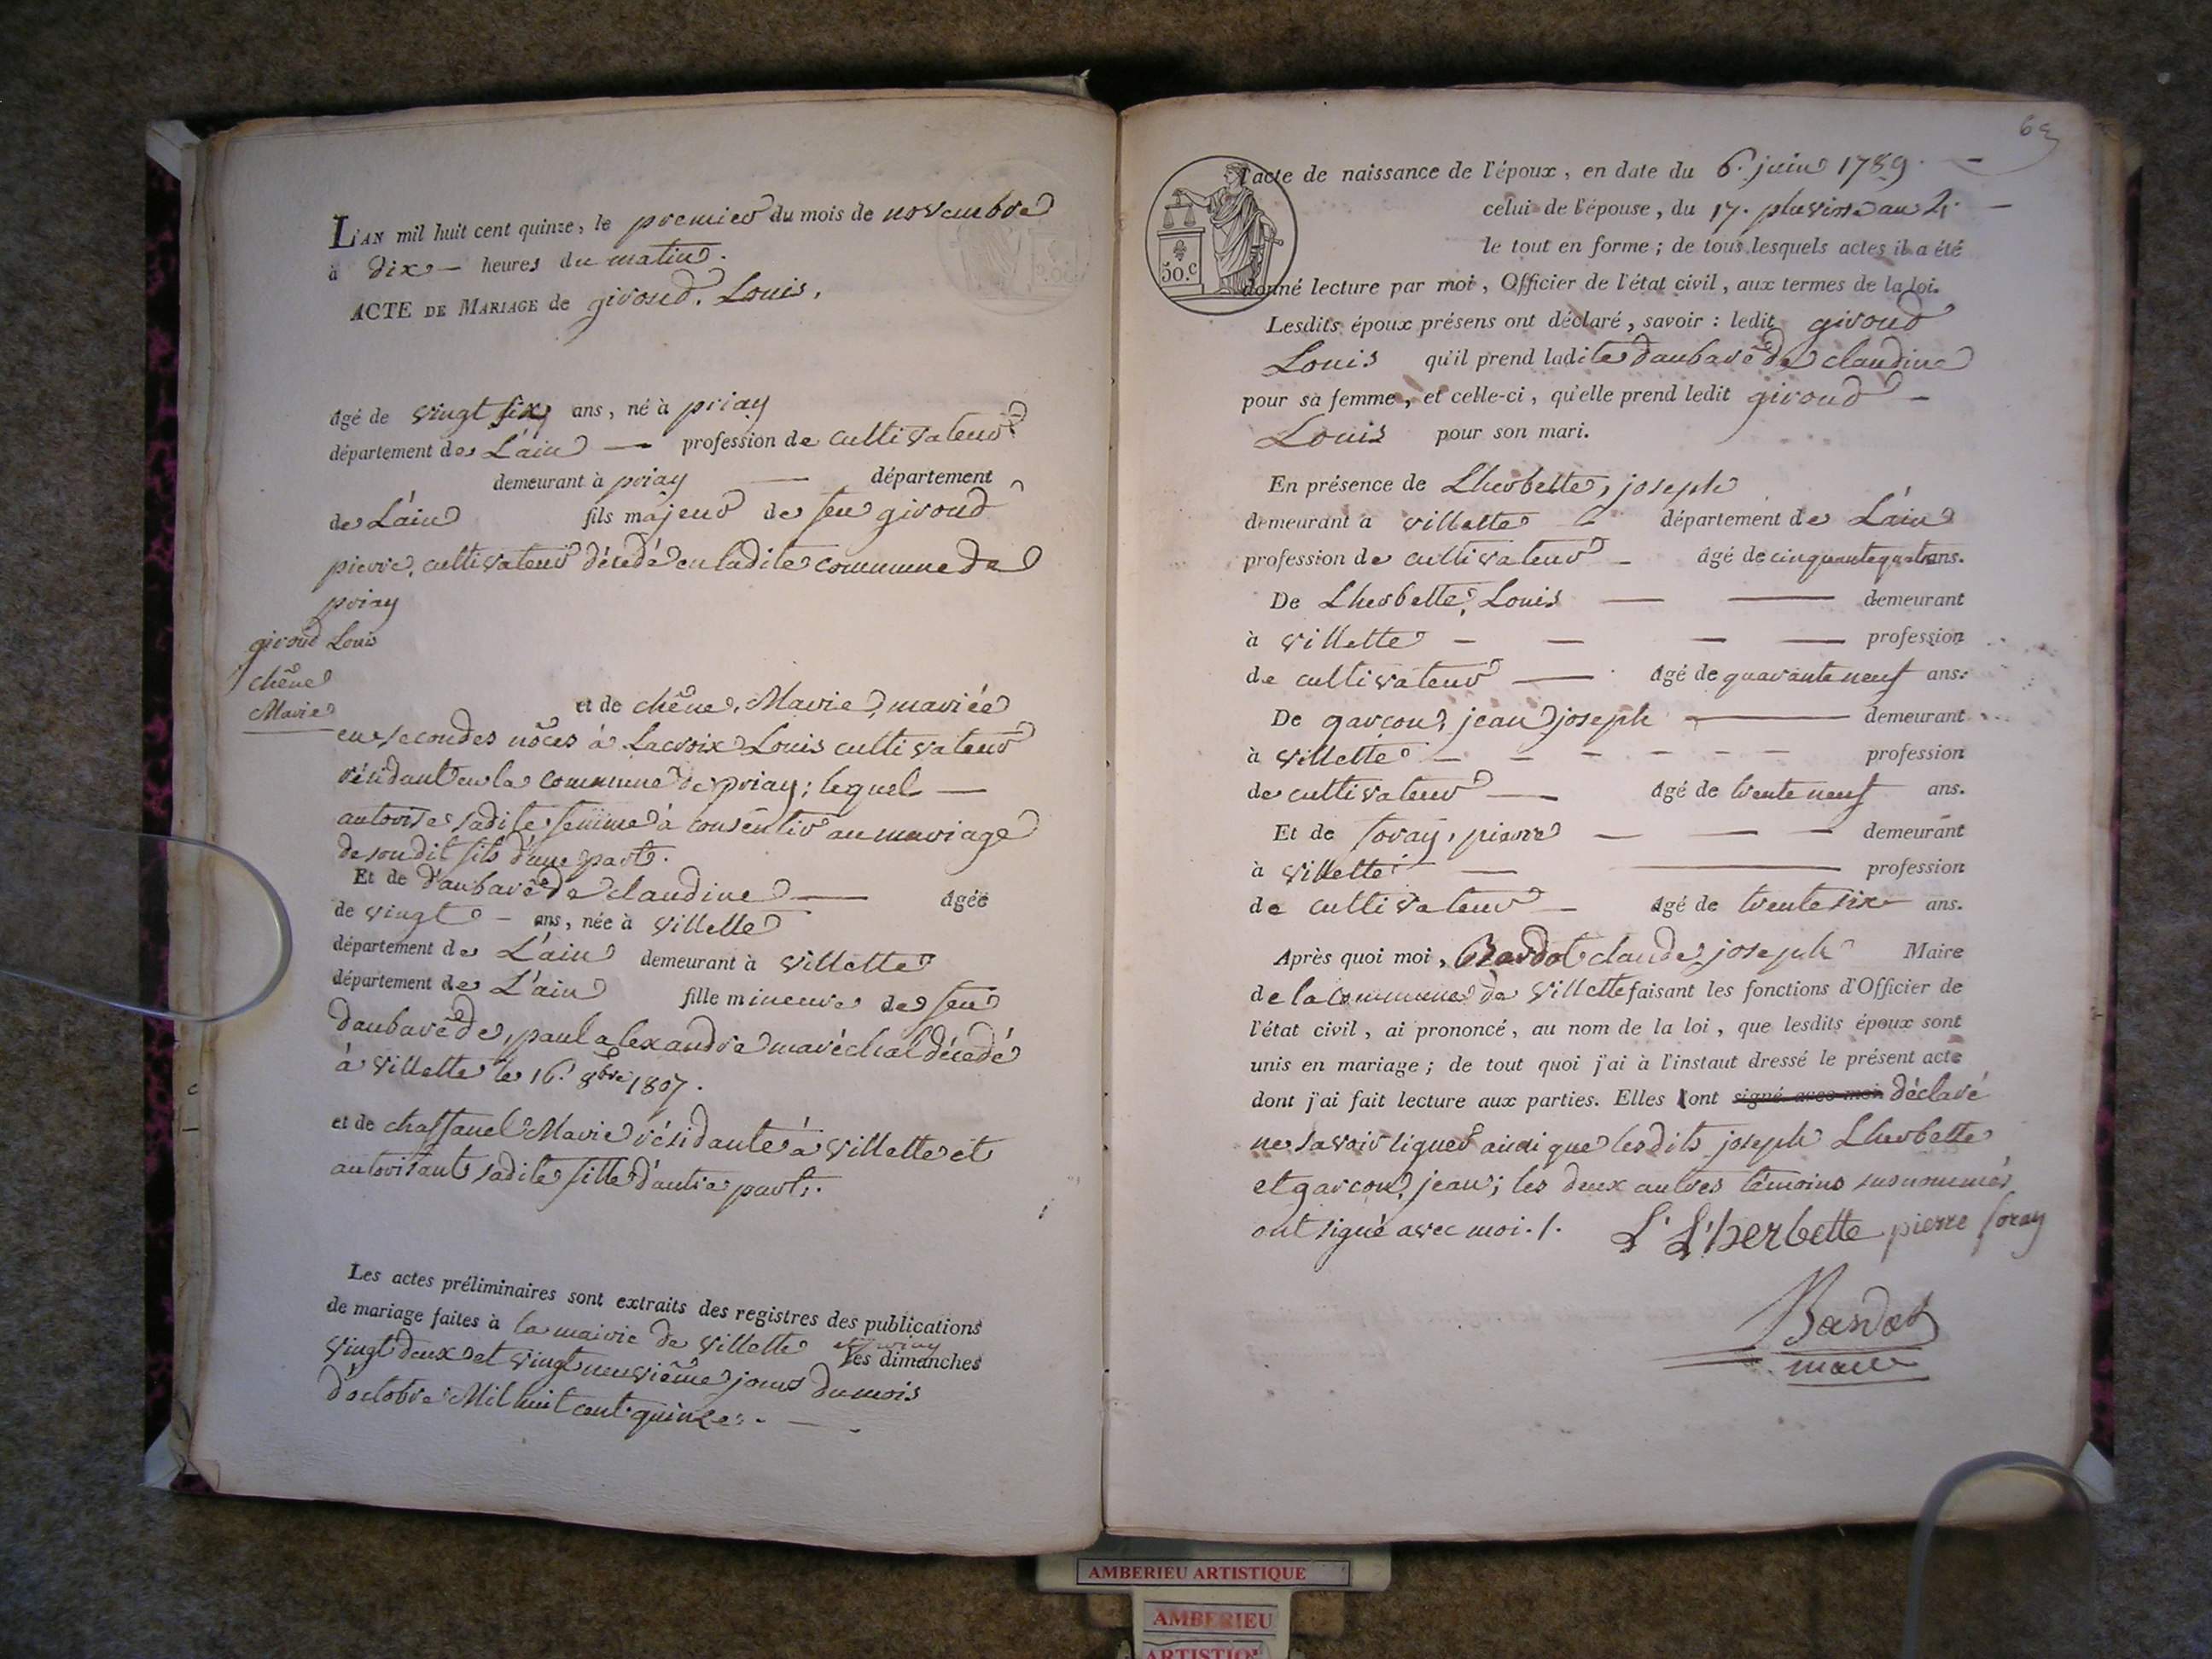 L'AN mil huit cent quinze, le premier du mois de novembre
à dix — heures du matin.
ACTE DE MARIAGE de giroud, Louis,
âgé de vingt six ans, né à priay
département de L'ain — profession de cultivateur
demeurant à priay — département
de L'ain fils majeur de feu giroud
pierre, cultivateur décédé en ladite commune de
priay
giroud Louis
chêne
Marie
et de chêne, Marie, mariée
en secondes nôces à Lacroix Louis cultivateur
résidant en la commune de priay; lequel —
autorise sadite femme à consentir au mariage
de son dit fils d'une part.
Et de daubarède claudine — âgée
de vingt — ans, née à Villette
département de L'ain demeurant à Villette
département de L'ain fille mineure de feu
daubarède, paul alexandre maréchal décédé
à Villette le 16. 8bre 1807.
et de chassanel Marie résidante à Villette et
autorisant sadite fille d'autre part.
Les actes préliminaires sont extraits des registres des publications
de mariage faites à la mairie de Villette et priay les dimanches
vingt deux et vingt neuvième jours du mois
d'octobre Mil huit cent quinze. —
l'acte de naissance de l'époux, en date du 6. juin 1789. —
celui de l'épouse, du 17. pluviose an —
le tout en forme; de tous lesquels actes il a été
50.c
donné lecture par moi, Officier de l'état civil, aux termes de la loi.
Lesdits époux présens ont déclaré, savoir: ledit giroud
Louis qu'il prend ladite daubarède claudine
pour sa femme, et celle-ci, qu'elle prend ledit giroud —
Louis pour son mari.
En présence de Lherbette, joseph
demeurant à villette — département de L'ain
profession de cultivateur — âgé de cinquante quatre ans.
De Lherbette, Louis — — demeurant
à Villette — — — — profession
de cultivateur — âgé de quarante neuf ans.
De garcon, jean joseph — demeurant
à Villette — — — — — — profession
de cultivateur — âgé de trente neuf ans.
Et de foray, pierre — — — demeurant
à Villette — — profession
de cultivateur — âgé de trente six ans.
Après quoi moi, Bardot claude joseph Maire
de la commune de Villette faisant les fonctions d'Officier de
l'état civil, ai prononcé, au nom de la loi, que lesdits époux sont
unis en mariage; de tout quoi j'ai à l'instant dressé le présent acte
dont j'ai fait lecture aux parties. Elles ont signé avec moi déclaré
ne savoir signer ainsi que lesdits joseph Lherbette
et garcon, jean; les deux autres témoins susnommés
ont signé avec moi. /. L' L'herbette pierre foray
Bardot
maire
AMBERIEU ARTISTIQUE
AMBERIEU
ARTISTIQ